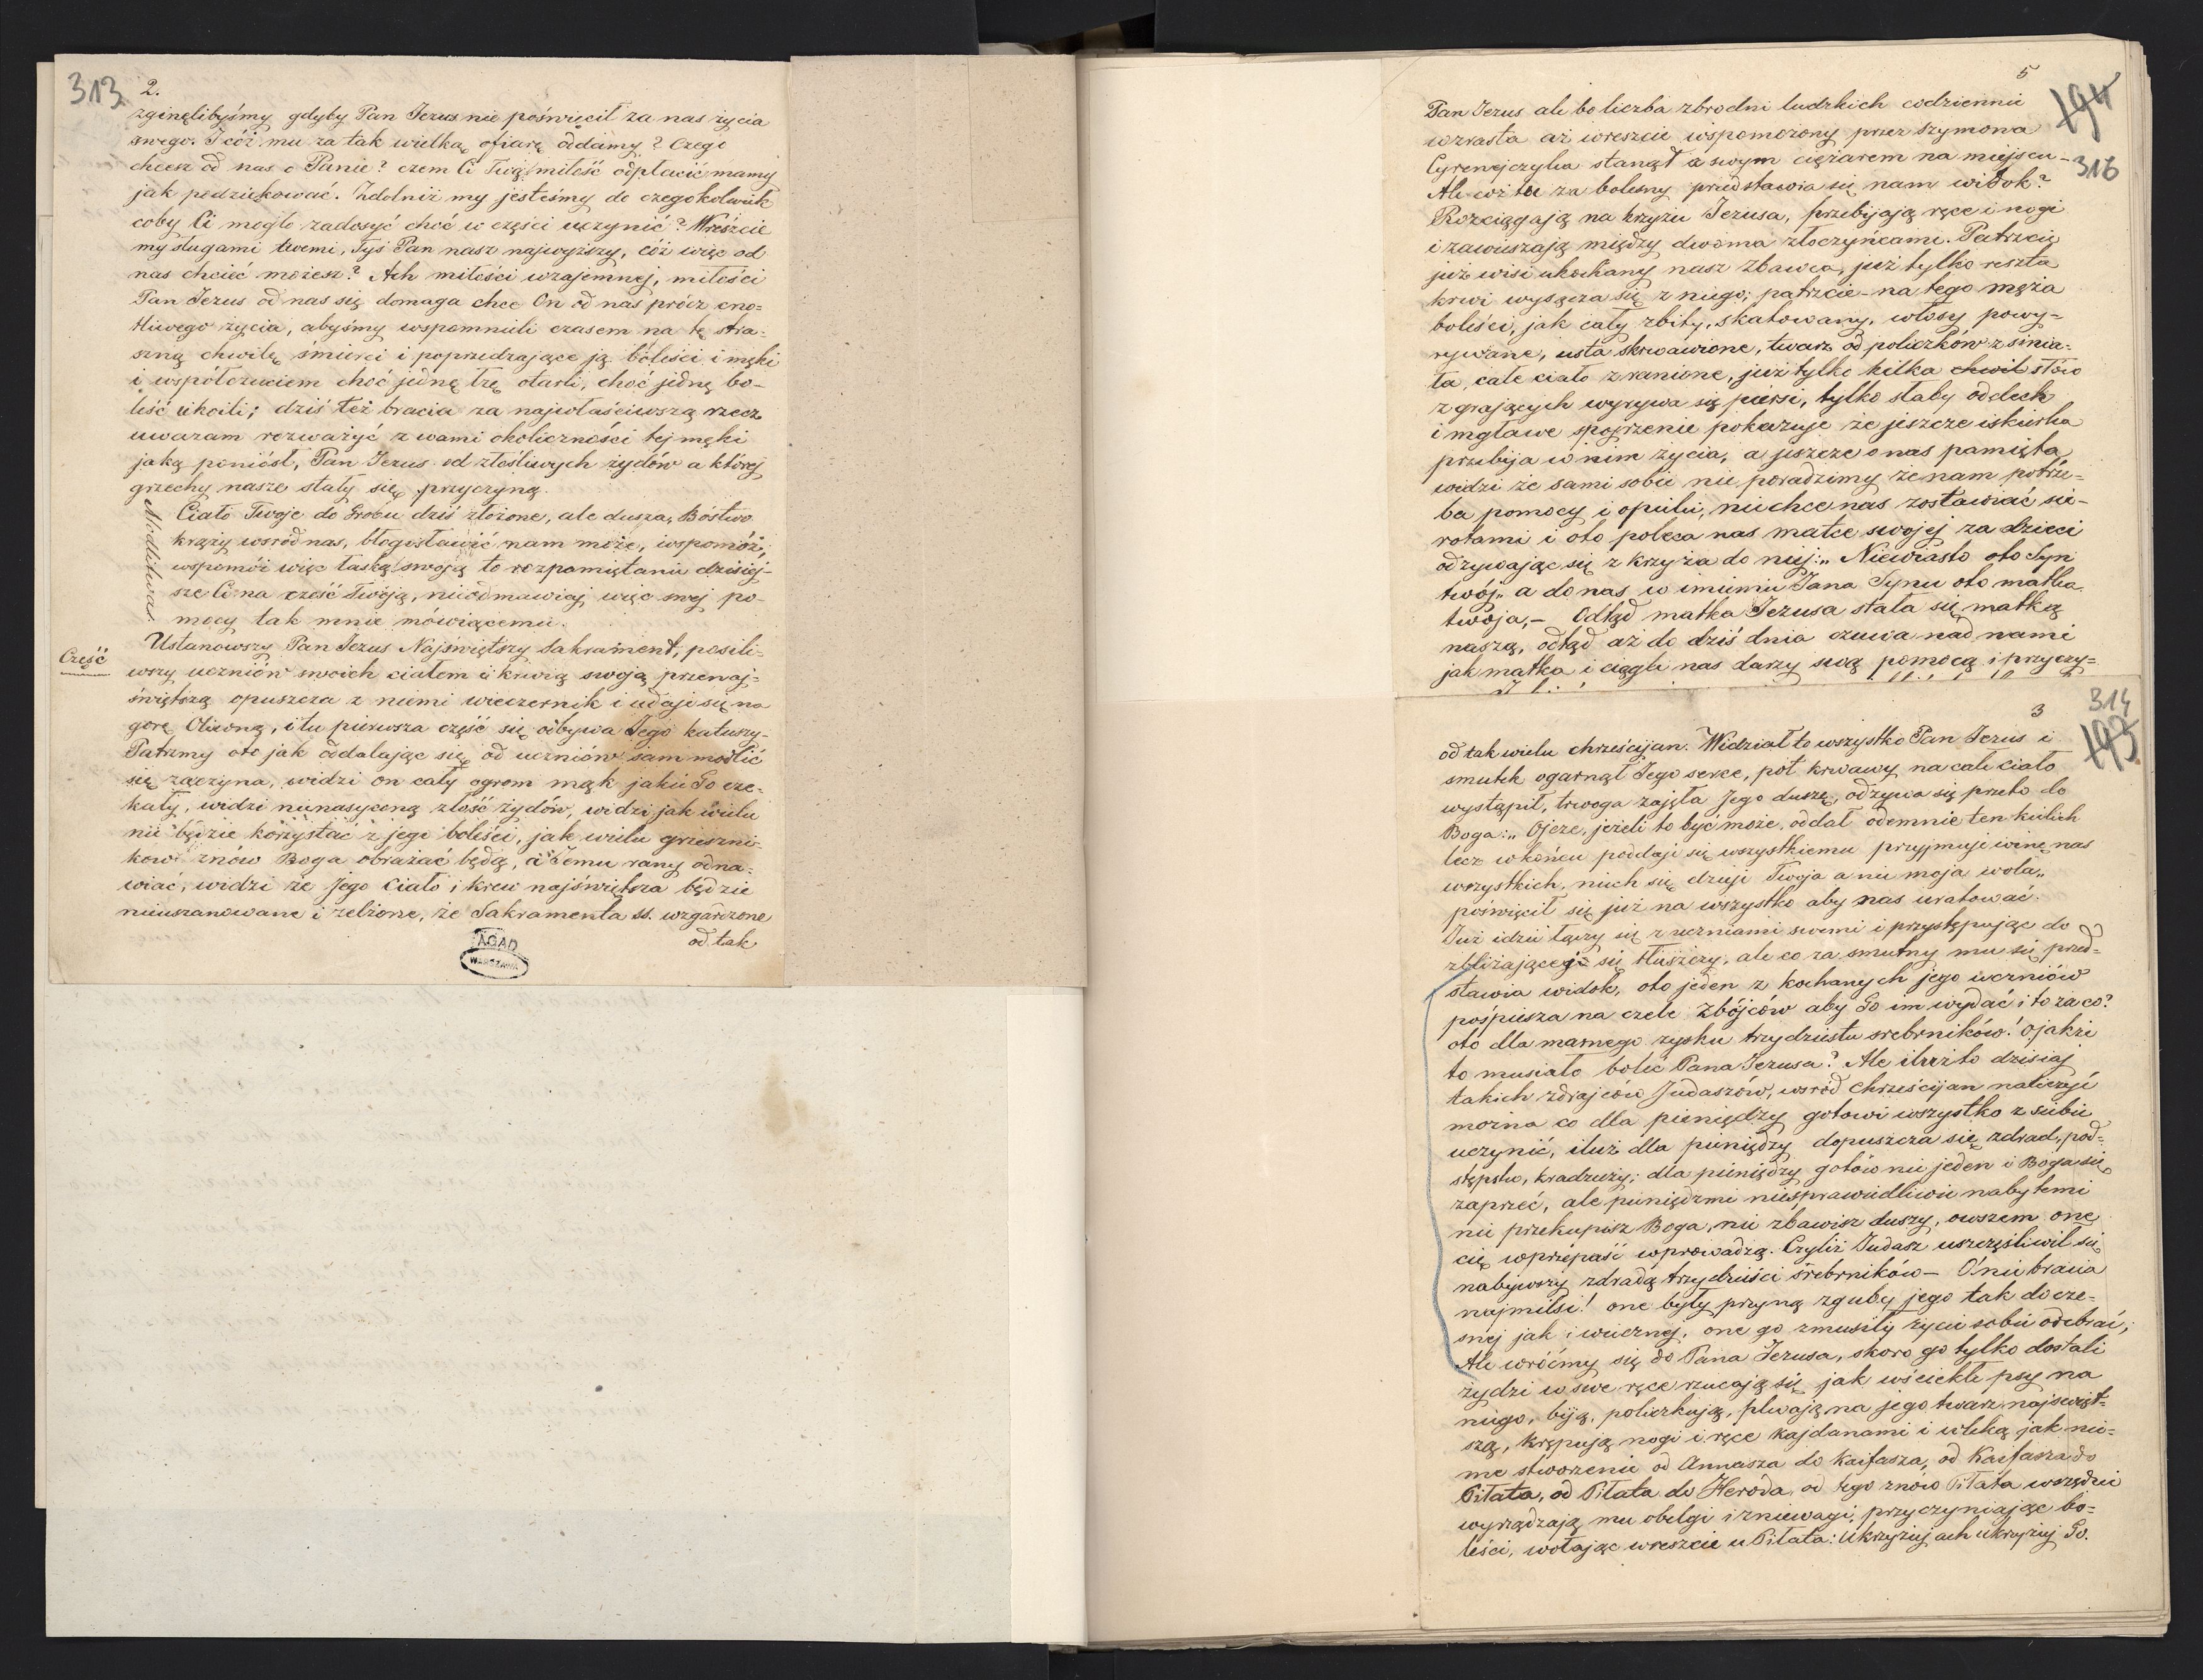 313
2.
zginęlibyśmy gdyby Pan Jezus nie poświęcił za nas życia
swego. I cóż mu za tak wielką ofiarę oddamy? Czego
chcesz od nas o Panie? czem Ci Twą miłość odpłacić mamy
jak podziękować. Zdolniż my jesteśmy do czegokolwiek
coby Ci mogło zadosyć choć w części uczynić? Wreszcie
my sługami twemi, Tyś Pan nasz najwyższy, cóż więc od
nas chcieć możesz? Ach miłości wzajemnej, miłości
Pan Jezus od nas się domaga chce On od nas prócz cno=
tliwego życia, abyśmy wspomnieli czasem na tę stra=
szną chwilę śmierci i poprzedzające ją boleści i męki
i współczuciem choć jednę łzę otarli, choć jednę bo-
leść ukoili; dziś też bracia za najwłaściwszą rzecz
uważam rozważyć z wami okoliczności tej męki
jaką poniósł, Pan Jezus od złośliwych żydów a której
grzechy nasze stały się przyczyną.
Modlitwa
Ciało Twoje do Grobu dziś złożone, ale dusza, Bóstwo
krąży wsród nas, błogosławić nam może, wspomóż,
wspomóż więc łaską swoją to rozpamiętanie dzisiej-
sze Ci na cześć Twoją, nieodmawiaj więc swej po-
mocy tak mnie mówiącemu.
Część
Ustanowszy Pan Jezus Najświętszy Sakrament, posili=
wszy uczniów swoich ciałem i krwią swoją przenaj=
świętszą opuszcza z niemi wieczernik i udaje się na
gorę Oliwną, i tu pierwsza część się odbywa Jego katuszy-
Patrzmy oto jak oddalając się od uczniów sam modlić
się zaczyna, widzi on cały ogrom mąk jakie Go cze-
kały, widzi nienasyconą złość żydów, widzi jak wielu
nie będzie korzystać z jego boleści, jak wielu grzeszni-
kow znów Boga obrażać będą, a Jemu rany odna=
wiać, widzi że Jego Ciało i krew najświętsza będzie
nieuszanowane i zelżone, że Sakramenta SS. wzgardzone
od tak
AGAD
WARSZAWA
5
194
316
Pan Jezus ale bo liczba zbrodni ludzkich codziennie
wzrasta aż wreszcie wspomożony przez Szymona
Cyrenejczyka stanął z swym ciężarem na miejscu-
Ale cóż tu za bolesny przedstawia się nam widok?
Rozciągają na krzyżu Jezusa, przebijają ręce i nogi
i zawieszają między dwoma złoczyńcami. Patrzcie
już wisi ukochany nasz Zbawca, już tylko reszta
krwi wysącza się z niego; patrzcie na tego męża
boleści, jak cały zbity, skatowany, włosy powy=
rywane, usta skrwawione, twarz od policzków zsinia=
ła, całe ciało zranione, już tylko kilka chwil słów
z grających wyrywa się piersi, tylko słaby oddech
i mgławe spojrzenie pokazuje że jeszcze iskierka
przebija w nim życia, a jeszcze o nas pamięta
widzi że sami sobie nie poradzimy że nam potrze-
ba pomocy i opieki, niechce nas zostawiać sie-
rotami i oto poleca nas matce swojej za dzieci
odzywając się z krzyża do niej: „Niewiasto oto Syn
twój„ a do nas w imieniu Jana Synu oto matka
twoja,- Odtąd matka Jezusa stała się matką
naszą, odtąd aż do dziś dnia czuwa nad nami
jak matka i ciągle nas darzy swą pomocą i przyczy=
3
314
193
od tak wielu chrześcijan. Widział to wszystko Pan Jezus i
smutek ogarnął Jego serce, pot krwawy na całe ciało
wystąpił, trwoga zajęła Jego duszę, odzywa się przeto do
Boga: „Ojcze, jeżeli to być może, oddal odemnie ten kielich
lecz w końcu poddaje się wszystkiemu przyjmuje winę nas
wszystkich, niech się dzieje Twoja a nie moja wola„
poświęcił się już na wszystko aby nas uratować.
Już idzie łączy się z uczniami swemi i przystępując do
zbliżającej się tłuszczy, ale co za smutny mu się przed=
stawia widok, oto jeden z kochanych jego uczniów
pośpiesza na czele zbójców aby Go im wydać i to za co?
oto dla marnego zysku trzydziestu srebrników! O jakże
to musiało boleć Pana Jezusa? Ale iluż to dzisiaj
takich zdrajców Judaszów, wsród chrześcijan naliczyć
można co dla pieniędzy gotowi wszystko z siebie
uczynić, iluż dla pieniędzy dopuszcza się zdrad, pod=
stępstw, kradzieży; dla pieniędzy gotów nie jeden i Boga się
zaprzeć, ale pieniędzmi niesprawiedliwie nabytemi
nie przekupisz Boga, nie zbawisz duszy, owszem one
cię w przepaść wprowadzą. Czyliż Judasz uszczęśliwił się
nabywszy zdradą trzydzieści srebrników- O! nie bracia
najmilsi! one były przyną zguby jego tak docze-
snej jak i wiecznej, one go zmusiły życie sobie odebrać;
Ale wróćmy się do Pana Jezusa, skoro go tylko dostali
żydzi w swe ręce rzucają się jak wściekłe psy na
niego, biją, policzkują, plwają na jego twarz najświęt=
szą, krępują nogi i ręce kajdanami i wleką jak nie=
me stworzenie od Annasza do Kaifasza, od Kaifasza do
Piłata, od Piłata do Heroda, od tego znów Piłata wszędzie
wyrządzają mu obelgi i zniewagi, przyczyniając bo=
leści, wołając wreszcie u Piłata: Ukrzyżuj ach ukrzyżuj Go.